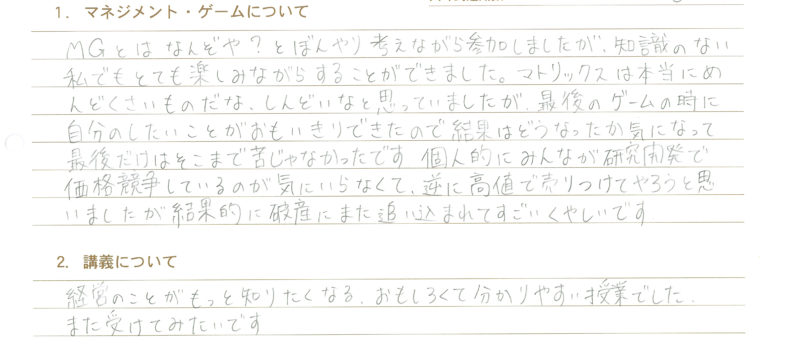 1. マネジメント・ゲームについて
MGとはなんぞや？とぼんやり考えながら参加しましたが、知識のない
私でもとても楽しみながらすることができました。マトリックスは本当にめ
んどくさいものだな、しんどいなと思っていましたが、最後のゲームの時に
自分のしたいことがおもいきりできたので結果はどうなったか気になって
最後だけはそこまで苦じゃなかったです 個人的にみんなが研究開発で
価格競争しているのが気にいらなくて、逆に高値で売りつけてやろうと思
いましたが結果的に破産にまた追い込まれてすごいくやしいです
2. 講義について
経営のことがもっと知りたくなる、おもしろくて分かりやすい授業でした、
また受けてみたいです